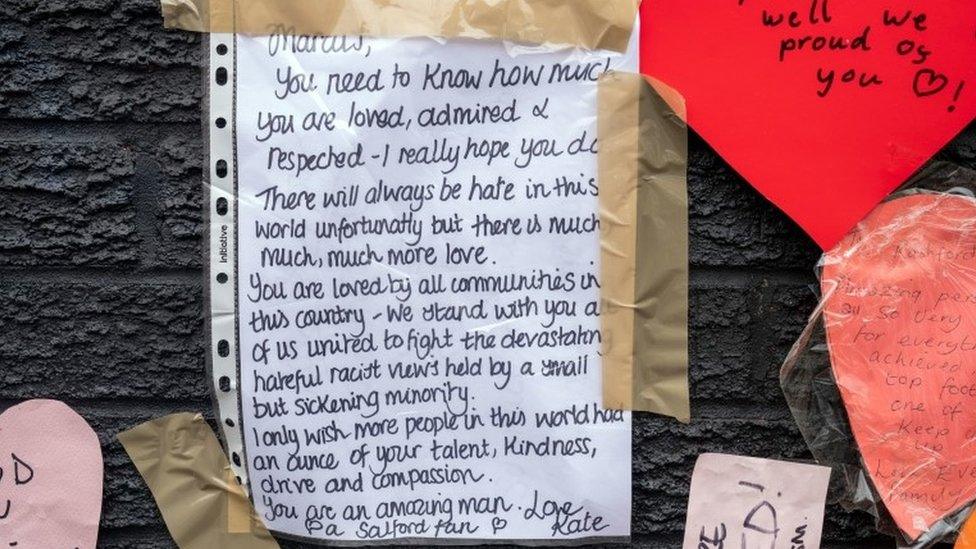 Marcus,
You need to know how much
you are loved, admired &
respected - I really hope you do
There will always be hate in this
world unfortunatly but there is much,
much, much more love.
You are loved by all communities in
this country - we stand with you all
of us united to fight the devastating
hateful racist views held by a small
but sickening minority.
I only wish more people in this world had
an ounce of your talent, kindness,
drive and compassion.
You are an amazing man. Love
♡ a Salford fan ♡ Kate
initiative
well we
proud of
you ♡!
Rashford
Amazing
all so very
for everyth
achieved
top foo
one of
Keep
top
Love
Family
D